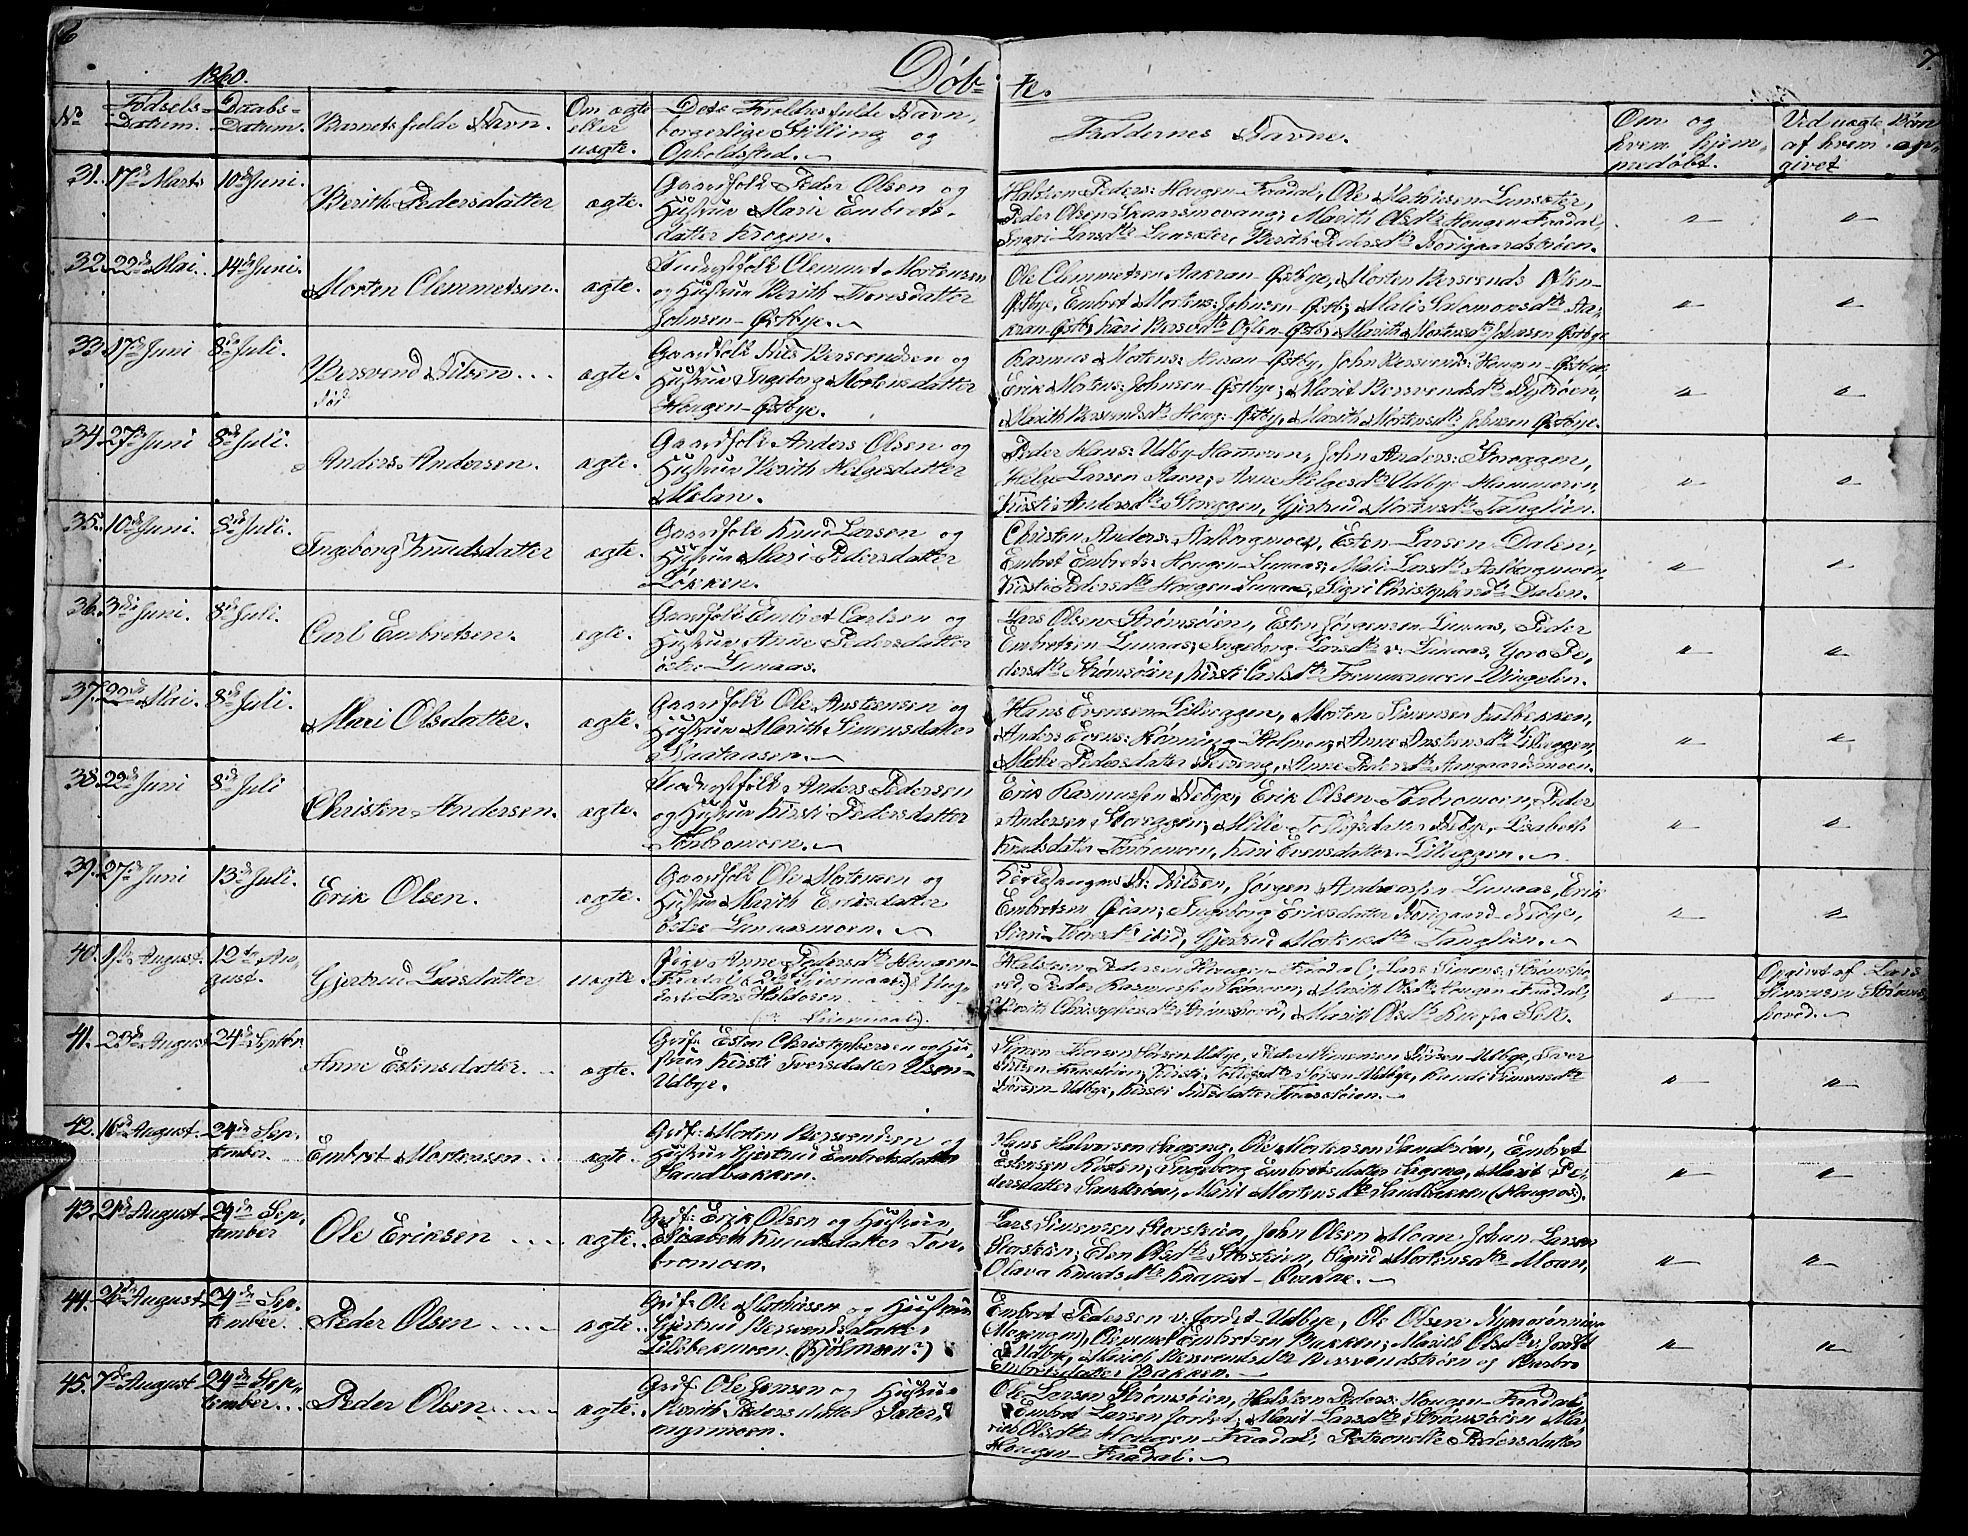 6
7.
1860.
Døbte.
No
Fødsels-
Datum.
Daabs-
Datum.
Barnets fulde Navn.
Om ægte
eller
uægte.
Dets Forældres fulde Navn,
borgerlige Stilling og
Opholdssted.
Faddernes Navne.
Om og
hvem hjem-
medøbt.
Ved uægte Børn
af hvem op-
givet
31. 17de Marts 10de Juni. Berith Pedersdatter ægte.
Gaardfolk Peder Olsen og
Hustrue Marie Embrets-
datter Krogen.
Halsten Peders: Hougen-Faadal, Ole Mathiesen Lunsæter,
Peder Olsen Skaarsmovang; Marith Olsdtr Hougen Faadal,
Ingri Larsdtr Lunsæter, Berith Pedersdtr
32. 22de Mai. 14de Juni. Morten Clemmetsen. ægte.
Clemmet Mortensen
og Hustrue Berith Thoresdatter
Johnsen-Østbye.
Ole Clemmetsen Aakran-Østbye, Morten Bersvends Olsen-
Østbye, Embret Mortens: Johnsen-Østb; Mali Salomonsdtr Aa-
kran-Østb, Kari Bersvdtr Olsen-Østb, Marith Mortensdtr Johnsen Østbye
33. 17de Juni 8de Juli. Bersvend Nilsen ægte.
død
Gaardfolk Nils Bersvendsen og
Hustrue Ingeborg Mortensdatter
Hougen-Østbye.
Rasmus Mortens: Moran-Østby, John Bersvends: Hougen-Østbye
Erik Mortens: Johnsen-Østbye; Marit Bersvendsdtr Nystrøen,
Marith Bersvendsdtr Houg:-Østby, Marith Mortensdtr Johnsen Østbye.
34. 27de Juni 8de Juli. Anders Andersen. ægte.
Gaardfolk Anders Olsen og
Hustrue Berith Helgesdatter
Molan.
Peder Hans: Udby-Hammeren, John Anders: Storeggen,
Helge Larsen Aaen; Anne Helgesdtr Udbye-Hammeren,
Kirsti Andersdtr Storeggen, Gjertrud Mortensdtr Langlien.
35. 10de Juni 8de Juli. Ingeborg Knudsdatter ægte.
Gaardfolk Knud Larsen og
Hustrue Mari Pedersdatter
Løkken.
Christen Anders: Aalborgmoen, Esten Larsen Dalen,
Embret Embrets: Hougen-Lunaas; Mali Larsdtr Aalborgmoen,
Kirsti Pedersdtr Hougen Lunaas, Sigri Christophersdtr Dalen.
36. 3die Juni. 8de Juli. Carl Embretsen. ægte.
Gaardfolk Embret Carlsen og
Hustrue Anne Pedersdatter
østre Lunaas.
Lars Olsen Strømsøien, Esten Jørgensen Lunaas, Peder
Embretsen Lunaas; Ingeborg Larsdtr v. Lunaas, Goro Pe-
dersdtr Strømsøien, Kirsti Carlsdtr Tommesmoen-Vingelen.
37. 22de Mai. 8de Juli. Mari Olsdatter. ægte.
Gaardfolk Ole Anstensen og
Hustrue Marith Simensdatter
Hans Evensen Lilleggen, Morten Simensen
Anders Evens: Rørning-Holmen; Anne Anstensdtr Lilleggen,
Pedersdatter Anne Pedersdtr Aasgaardsmoen.
38. 22de Juni 8de Juli Christen Andersen. ægte.
Anders Pedersen
og Hustrue Kirsti Pedersdatter
Tonbromoen.
Erik Rasmussen Nebye; Erik Olsen Tonbromoen, Peder
Andersen Storeggen; Mille Nebye, Lisabeth
Knudsdatter Tonbromoen, Kari Evensdatter Lilleggen.
39. 27de Juni 13de Juli. Erik Olsen. ægte.
Gaardfolk Ole Mortensen og
Hustrue Marith Eriksdatter
østre Lunaasmoen.
Kirkesanger Nilsen, Jørgen Andreassen Lunaas, Erik
Embretsen Øian; Ingeborg Eriksdatter Nebye,
Siari Thoresdtr ibid, Gjertrud Mortensdtr Langlien.
40. 1ste August. 19de Au-
gust. Gjertrud Larsdatter uægte.
Pige Anne Pedersdtr Hougen-
Faadal (2det Leiermaal) & Ung-
karl Lars
Leiermaal).
Halsten Pedersen Hougen-Faadal; Lars Simens: Strømsho-
ved, Peder Rasmussen Marith Olsdtr Hougen Faadal,
Berith Christophersdtr Strømshoved, Marith Olsdtr
Opgivet af Lars
Simensen Strøms-
hoved.
41. 23de August 24de Septbr. Anne Estensdatter ægte.
Grdf: Esten Christophersen og Hu-
strue Kirsti Iversdatter Olsen-
Udbye.
Simen Thoresen Udbye, Peder Simensen Udbye, Iver
Nilsen Kirsti Udbye, Simensdtr
Udbye, Kirsti Nilsdatter
42. 16de August. 24de Sep-
tember. Embret Mortensen ægte.
Grdf: Morten Bersvendsen og
Hustrue Gjertrud Embretsdatter
Sandbakken.
Hans Halvorsen Ole Mortensen Sandtrøen, Embret
Estensen Kosten; Ingeborg Embretsdatter Marit Pe-
dersdatter Sandtrøen, Marit Mortensdtr Sandbakken
43. 21de August 24de Sep-
tember Ole Eriksen ægte.
Grdf: Erik Olsen og Hustrue
Lisabeth Knudsdatter Ton-
bromoen.
Lars Simensen Storsteien, John Olsen Moan, Johan Larsen
Storsteien; Elen Olsdtr Storsteien, Sigrid Mortensdtr Moan,
Olava Knudsdtr
44. 26de August 24de Sep-
tember Peder Olsen ægte.
Grdf: Ole Mathissen og Hustrue
Gjertrud Bersvendsdatter
Lillebekmoen.
Embret Pedersen v. Jordet Udbye, Ole Olsen
Embretsen Bakken; Marith Olsdtr v. Jordet
Udbye, Bersvendsdtr Bersvendstrøen og
Embretsdatter Bakken.
45. 7de August 24de Sep-
tember Peder Olsen ægte.
Grdf: Ole Jensen og Hustrue
Berith Pedersdatter Sæter-
engmoen.
Ole Larsen Strømsøien, Halsten Peders: Hougen-Faadal,
Embret Larsen Jordet; Marit Larsdtr Strømsøien, Ma-
rith Olsdtr Hougen-Faadal, Petronelle Pedersdatter
Hougen-Faadal.